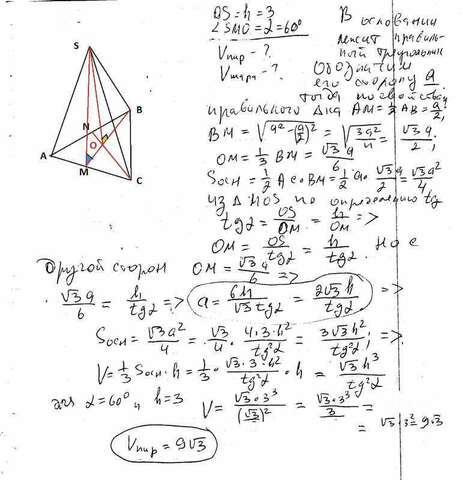 S
B
N
O
A
M
C
OS = h = 3
∠SMO = α = 60°
Vпир - ?
Vшара - ?
В основании
лежит правиль-
ный треугольник
Обозначим
его сторону a.
тогда по свойству
правильного Δка AM = ½ AB = a/2,
BM = √(a² - (a/2)²) = √(3a²/4) = √3a/2;
OM = 1/3 BM = √3a/6
Sосн = 1/2 AC·BM = 1/2 · a · √3a/2 = √3a²/4
из Δ MOS по определению tg
tgα = OS/OM = h/OM =>
OM = OS/tgα = h/tgα. но с
другой сторон OM = √3a/6 =>
√3a/6 = h/tgα => a = 6h/√3tgα = 2√3h/tgα =>
Sосн = √3a²/4 = √3/4 · 4·3·h²/tg²α = 3√3h²/tg²α; =>
V = 1/3 Sосн·h = 1/3 · √3·3·3·h²/tg²α · h = √3h³/tg²α
для α = 60° и h = 3 V = √3·3³/(√3)² = √3·3³/3 =
= √3·3² = 9√3
Vпир = 9√3